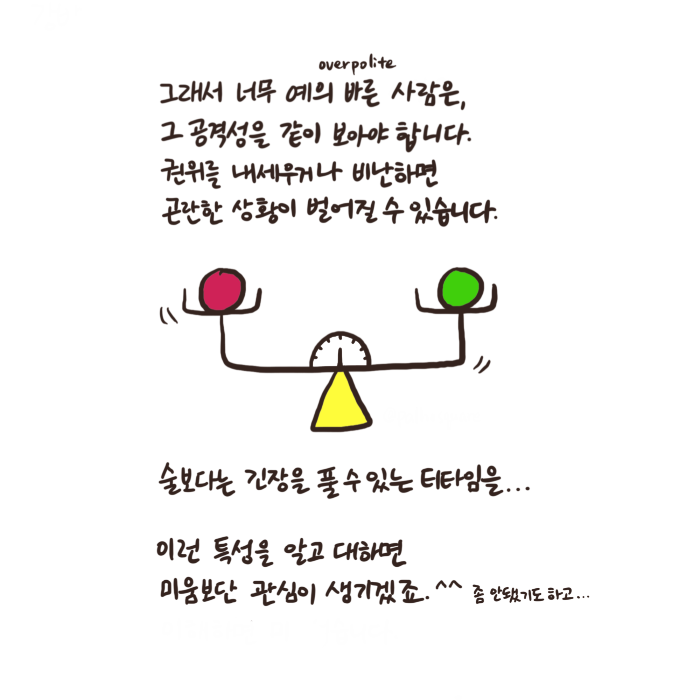 overpolite
그래서 너무 예의 바른 사람은,
그 공격성을 같이 보아야 합니다.
권위를 내세우거나 비난하면
곤란한 상황이 벌어질 수 있습니다.
술보다는 긴장을 풀 수 있는 티타임을...
이런 특성을 알고 대하면
미움보단 관심이 생기겠죠.^^ 좀 안됐기도 하고...